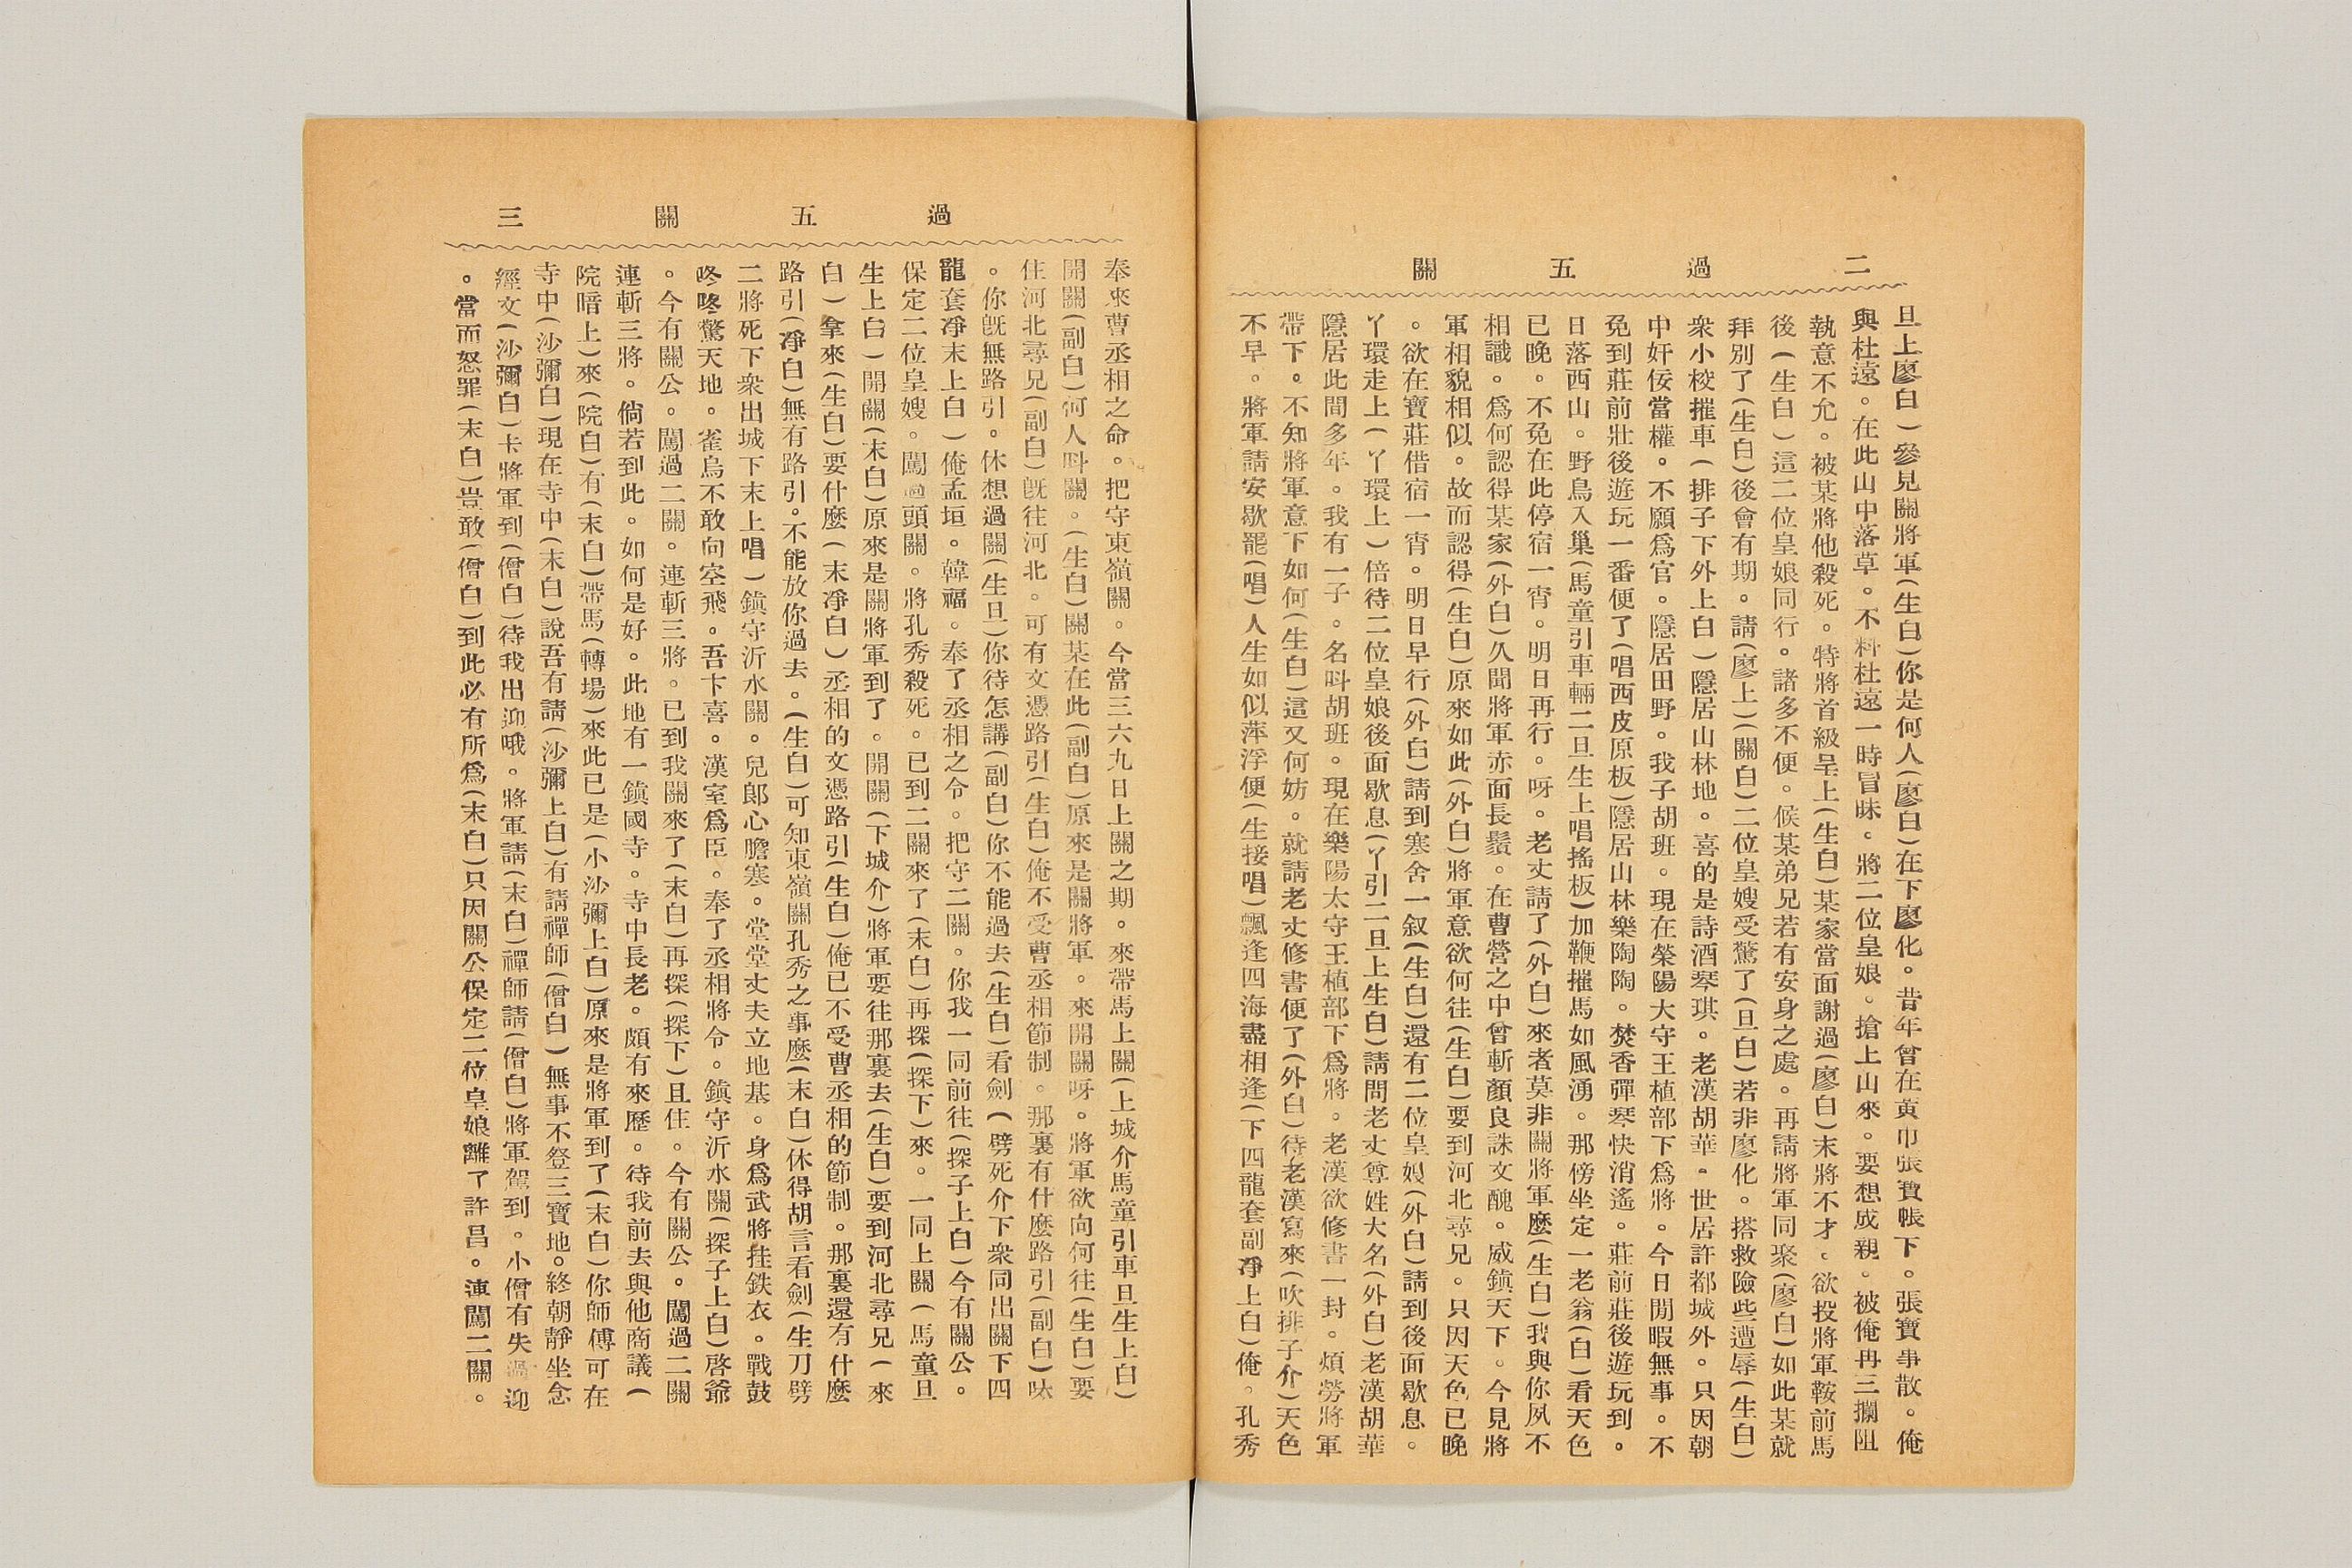 二 過 五 關
旦上廖白)參見關將軍(生白)你是何人(廖白)在下廖化。昔年曾在黃巾張寶帳下。張寶事散。俺
與杜遠。在此山中落草。不料杜遠一時冒昧。將二位皇娘。搶上山來。要想成親。被俺再三攔阻
執意不允。被某將他殺死。特將首級呈上(生白)某家當面謝過(廖白)末將不才。欲投將軍鞍前馬
後(生白)這二位皇娘同行。諸多不便。候某弟兄若有安身之處。再請將軍同聚(廖白)如此某就
拜別了(生白)後會有期。請(廖上)(關白)二位皇嫂受驚了(旦白)若非廖化。搭救險些遭辱(生白)
衆小校摧車(排子下外上白)隱居山林地。喜的是詩酒琴琪。老漢胡華。世居許都城外。只因朝
中奸佞當權。不願爲官。隱居田野。我子胡班。現在榮陽大守王植部下爲將。今日閒暇無事。不
免到莊前壯後遊玩一番便了(唱西皮原板)隱居山林樂陶陶。焚香彈琴快消遙。莊前莊後遊玩到。
日落西山。野鳥入巢(馬童引車輛二旦生上唱搖板)加鞭摧馬如風湧。那傍坐定一老翁(白)看天色
已晚。不免在此停宿一宵。明日再行。呀。老丈請了(外白)來者莫非關將軍麽(生白)我與你夙不
相識。爲何認得某家(外白)久聞將軍赤面長鬚。在曹營之中曾斬顏良誅文醜。威鎭天下。今見將
軍相貌相似。故而認得(生白)原來如此(外白)將軍意欲何往(生白)要到河北尋兄。只因天色已晚
。欲在寶莊借宿一宵。明日早行(外白)請到寒舍一叙(生白)還有二位皇嫂(外白)請到後面歇息。
丫環走上(丫環上)倍待二位皇娘後面歇息(丫引二旦上生白)請問老丈尊姓大名(外白)老漢胡華
隱居此間多年。我有一子。名呌胡班。現在樂陽太守王植部下爲將。老漢欲修書一封。煩勞將軍
帶下。不知將軍意下如何(生白)這又何妨。就請老丈修書便了(外白)待老漢寫來(吹排子介)天色
不早。將軍請安歇罷(唱)人生如似萍浮便(生接唱)飄逢四海盡相逢(下四龍套副凈上白)俺。孔秀
過 五 關 三
奉來曹丞相之命。把守東嶺關。今當三六九日上關之期。來帶馬上關(上城介馬童引車旦生上白)
開關(副白)何人呌關。(生白)關某在此(副白)原來是關將軍。來開關呀。將軍欲向何往(生白)要
往河北尋兄(副白)旣往河北。可有文憑路引(生白)俺不受曹丞相節制。那裏有什麽路引(副白)呔
。你旣無路引。休想過關(生旦)你待怎講(副白)你不能過去(生白)看劍(劈死介下衆同出關下四
龍套凈末上白)俺孟垣。韓福。奉了丞相之令。把守二關。你我一同前往(探子上白)今有關公。
保定二位皇嫂。闖過頭關。將孔秀殺死。已到二關來了(末白)再探(探下)來。一同上關(馬童旦
生上白)開關(末白)原來是關將軍到了。開關(下城介)將軍要往那裏去(生白)要到河北尋兄(來
白)拿來(生白)要什麽(末凈白)丞相的文憑路引(生白)俺已不受曹丞相的節制。那裏還有什麽
路引(凈白)無有路引。不能放你過去。(生白)可知東嶺關孔秀之事麽(末白)休得胡言看劍(生刀劈
二將死下衆出城下末上唱)鎭守沂水關。兒郞心膽寒。堂堂丈夫立地基。身爲武將挂鉄衣。戰鼓
咚咚驚天地。雀烏不敢向空飛。吾卞喜。漢室爲臣。奉了丞相將令。鎭守沂水關(探子上白)啓爺
。今有關公。闖過二關。連斬三將。已到我關來了(末白)再探(探下)且住。今有關公。闖過二關
連斬三將。倘若到此。如何是好。此地有一鎭國寺。寺中長老。頗有來歷。待我前去與他商議(
院暗上)來(院白)有(末白)帶馬(轉場)來此已是(小沙彌上白)原來是將軍到了(末白)你師傅可在
寺中(沙彌白)現在寺中(末白)說吾有請(沙彌上白)有請禪師(僧白)無事不登三寶地。終朝靜坐念
經文(沙彌白)卡將軍到(僧白)待我出迎哦。將軍請(末白)禪師請(僧白)將軍駕到。小僧有失過迎
。當而怒罪(末白)豈敢(僧白)到此必有所爲(末白)只因關公保定二位皇娘離了許昌。連闖二關。